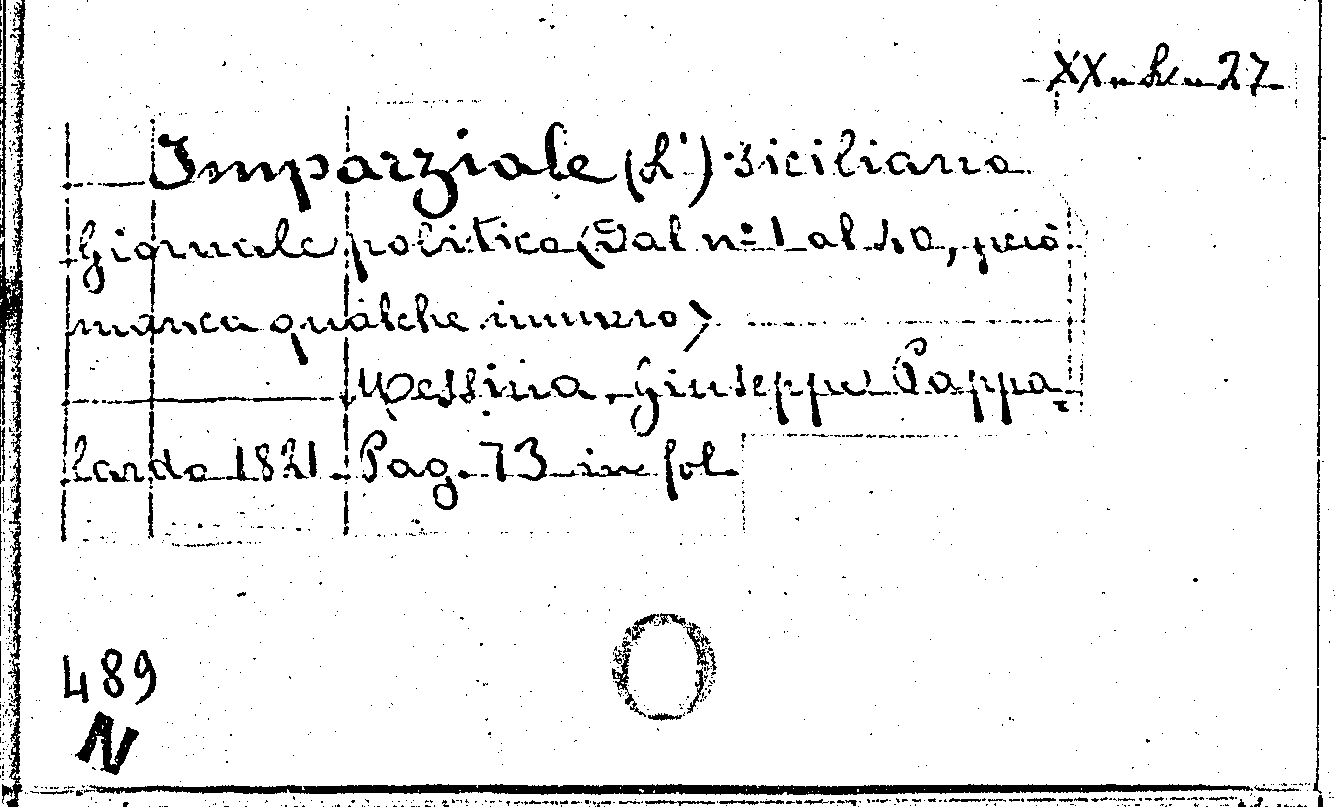 XX. H. 27
Imparziale (L') siciliano
Giornale politico (Dal nº 1 al 40, però
manca qualche numero)
Messina, Giuseppe Pappa=
lardo 1821. Pag. 73 in fol.
489
N